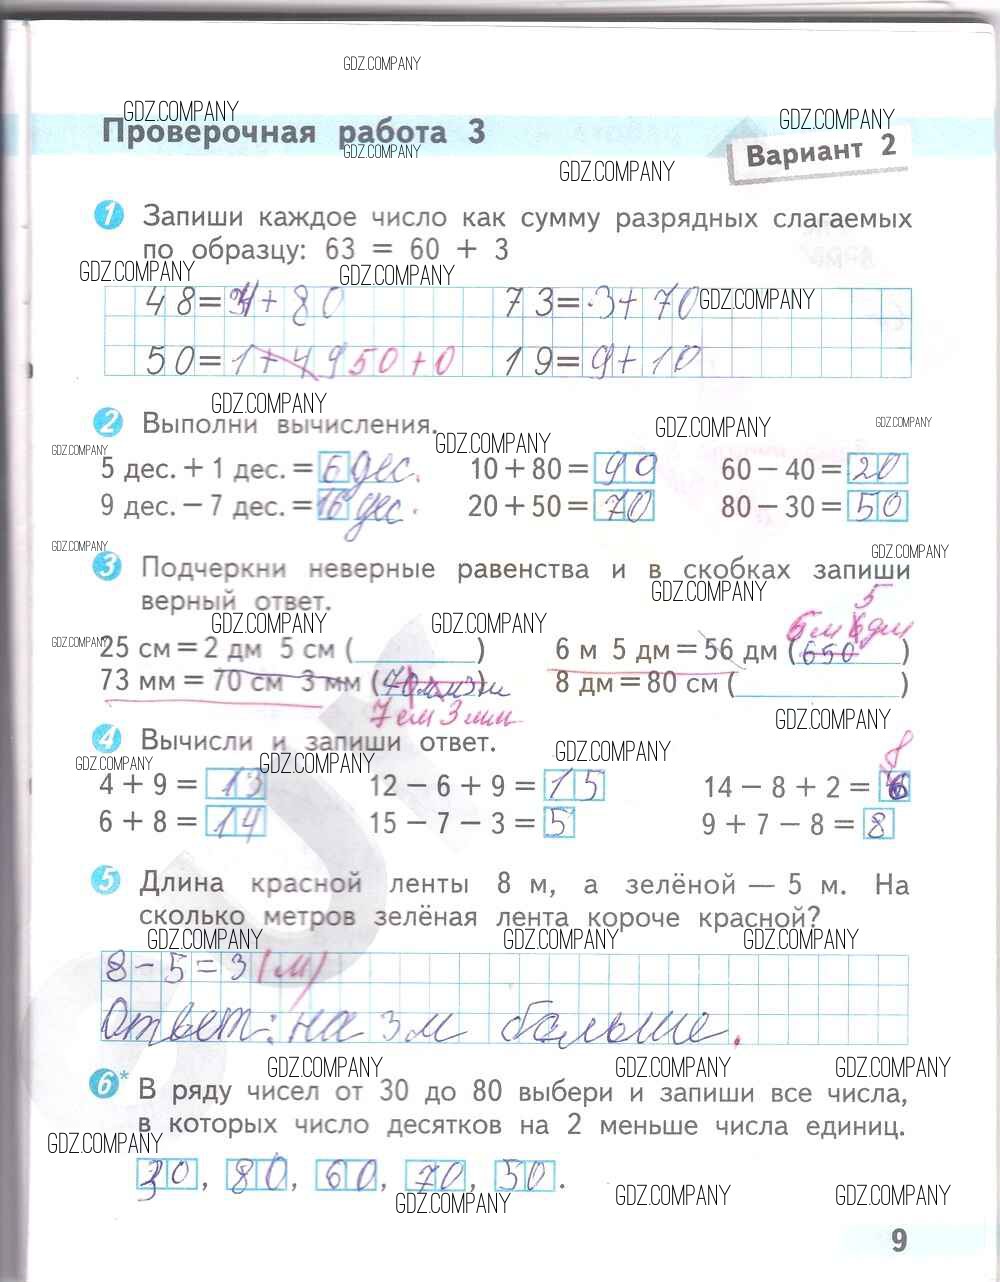 GDZ.COMPANY
GDZ.COMPANY
GDZ.COMPANY
Проверочная работа 3
GDZ.COMPANY
Вариант 2
GDZ.COMPANY
1 Запиши каждое число как сумму разрядных слагаемых
по образцу: 63 = 60 + 3
GDZ.COMPANY GDZ.COMPANY
48= + 80 73= 3+ 70 GDZ.COMPANY
50= 1+49 50+0 19= 9+10
GDZ.COMPANY
2 Выполни вычисления.
GDZ.COMPANY GDZ.COMPANY
GDZ.COMPANY GDZ.COMPANY
5 дес. + 1 дес. = 6 дес. 10 + 80 = 90 60 − 40 = 20
9 дес. − 7 дес. = 16 дес. 20 + 50 = 70 80 − 30 = 50
GDZ.COMPANY GDZ.COMPANY
3 Подчеркни неверные равенства и в скобках запиши
верный ответ.
GDZ.COMPANY
GDZ.COMPANY GDZ.COMPANY
5
6м 6дм
GDZ.COMPANY
25 см = 2 дм 5 см ( ) 6 м 5 дм = 56 дм (650)
73 мм = 70 см 3 мм ( ) 8 дм = 80 см ( )
7 см 3 мм
GDZ.COMPANY
4 Вычисли и запиши ответ.
8
GDZ.COMPANY GDZ.COMPANY GDZ.COMPANY
4 + 9 = 13 12 − 6 + 9 = 15 14 − 8 + 2 = 6
6 + 8 = 14 15 − 7 − 3 = 5 9 + 7 − 8 = 8
5 Длина красной ленты 8 м, а зелёной — 5 м. На
сколько метров зелёная лента короче красной?
GDZ.COMPANY GDZ.COMPANY GDZ.COMPANY
8 − 5 = 3 (м)
Ответ: на 3 м больше.
GDZ.COMPANY GDZ.COMPANY GDZ.COMPANY
6* В ряду чисел от 30 до 80 выбери и запиши все числа,
в которых число десятков на 2 меньше числа единиц.
GDZ.COMPANY
30, 80, 60, 70, 50.
GDZ.COMPANY GDZ.COMPANY GDZ.COMPANY
9